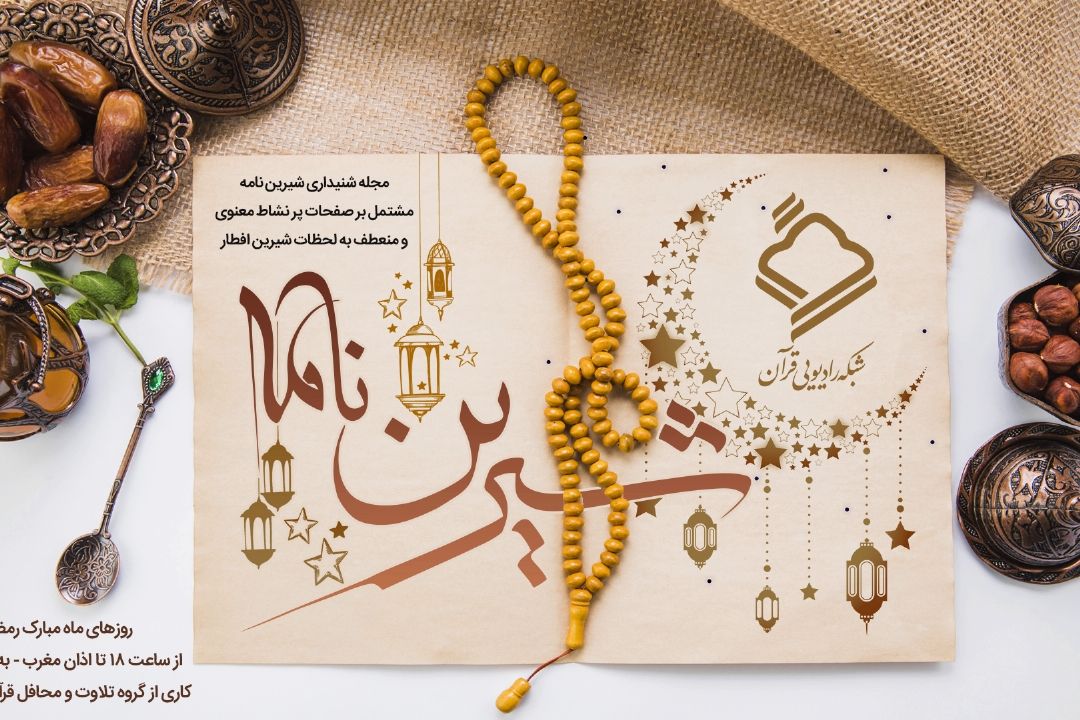 مجله شنیداری شیرین نامه
مشتمل بر صفحات پر نشاط معنوی
و منعطف به لحظات شیرین افطار
شبکه رادیویی قرآن
شیرین ناما
روزهای ماه مبارک
از ساعت ۱۸ تا اذان مغرب -
کاری از گروه تلاوت و محافل